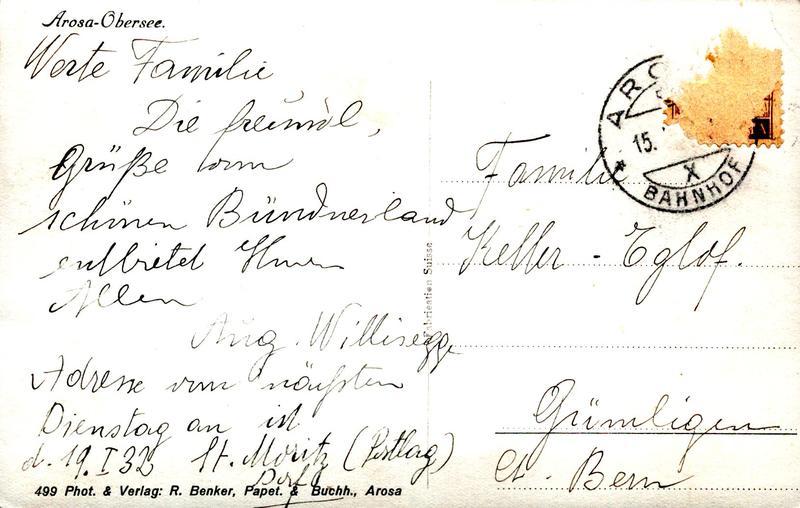 Arosa-Obersee.
Werte Familie
Die freundl.
Grüße vom
schönen Bündnerland
entbietet Ihnen
Allen
Aug. Willisegg
Adresse vom nächsten
Dienstag an ist
d. 19. I 32 St. Moritz (Postlag)
Dorf
499 Phot. & Verlag: R. Benker, Papet. & Buchh., Arosa
Fabrication Suisse
ARO
15.
X
BAHNHOF
Familie
Keller - Eglof.
Gümligen
Ct. Bern